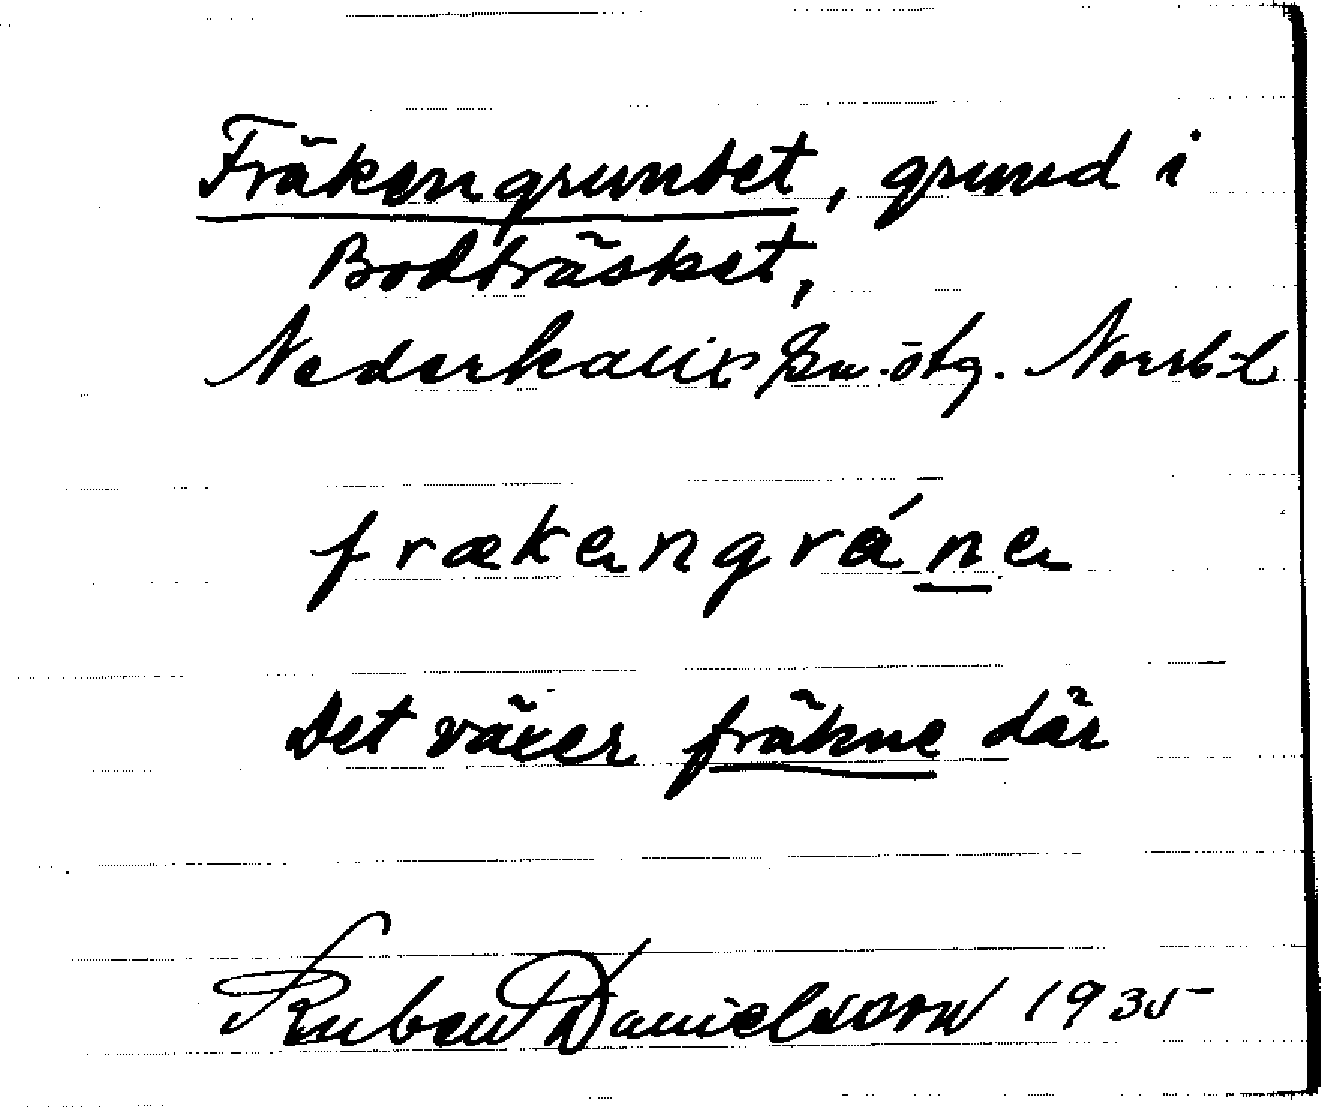 Fräkengrundet, grund i
Bodträsket,
Nederkalix sn. östg. Norrb. l
frækengrána
Det växer fräkne där
Ruben Danielsson 1935